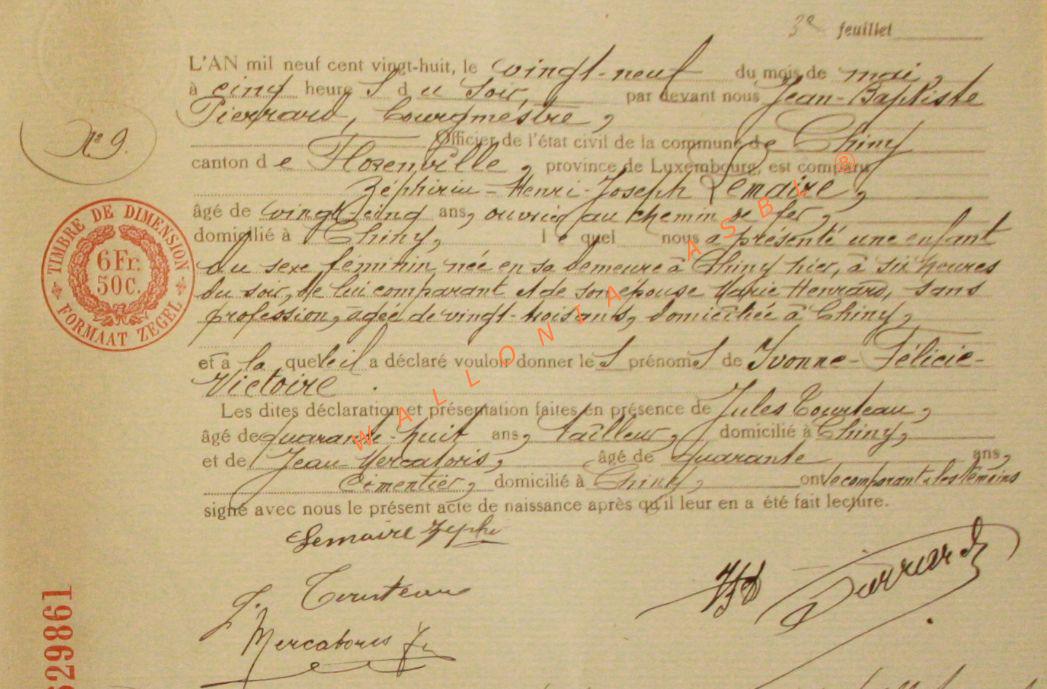 3e feuillet
L'AN mil neuf cent vingt-huit, le vingt-neuf du mois de mai,
à cinq heure s du soir, par devant nous Jean-Baptiste
Pierrard, bourgmestre,
Officier de l'état civil de la commune de Chiny
N° 9.
canton de Florenville, province de Luxembourg, est comparu
Zéphirin-Henri-Joseph Lemaire,
âgé de vingt-cinq ans, ouvrier au chemin de fer,
domicilié à Chiny, le quel nous a présenté une enfant
du sexe féminin née en sa demeure à Chiny hier, à six heures
du soir, de lui comparant et de son épouse Marie Henrard, sans
profession, agée de vingt-trois ans, domiciliée à Chiny,
et à la quelle il a déclaré vouloir donner les prénoms de Yvonne-Félicie-
Victoire.
Les dites déclaration et présentation faites en présence de Jules Tourteau,
âgé de quarante-huit ans, tailleur, domicilié à Chiny,
et de Jean Mercatoris, âgé de quarante ans,
cimentier, domicilié à Chiny, ont le comparant et les témoins
signé avec nous le présent acte de naissance après qu'il leur en a été fait lecture.
Lemaire Zéphi
J. Tourteau
Mercatoris
Pierrard
TIMBRE DE DIMENSION
6 Fr.
50 C.
FORMAAT ZEGEL
629861
WALLONIA ASBL ®